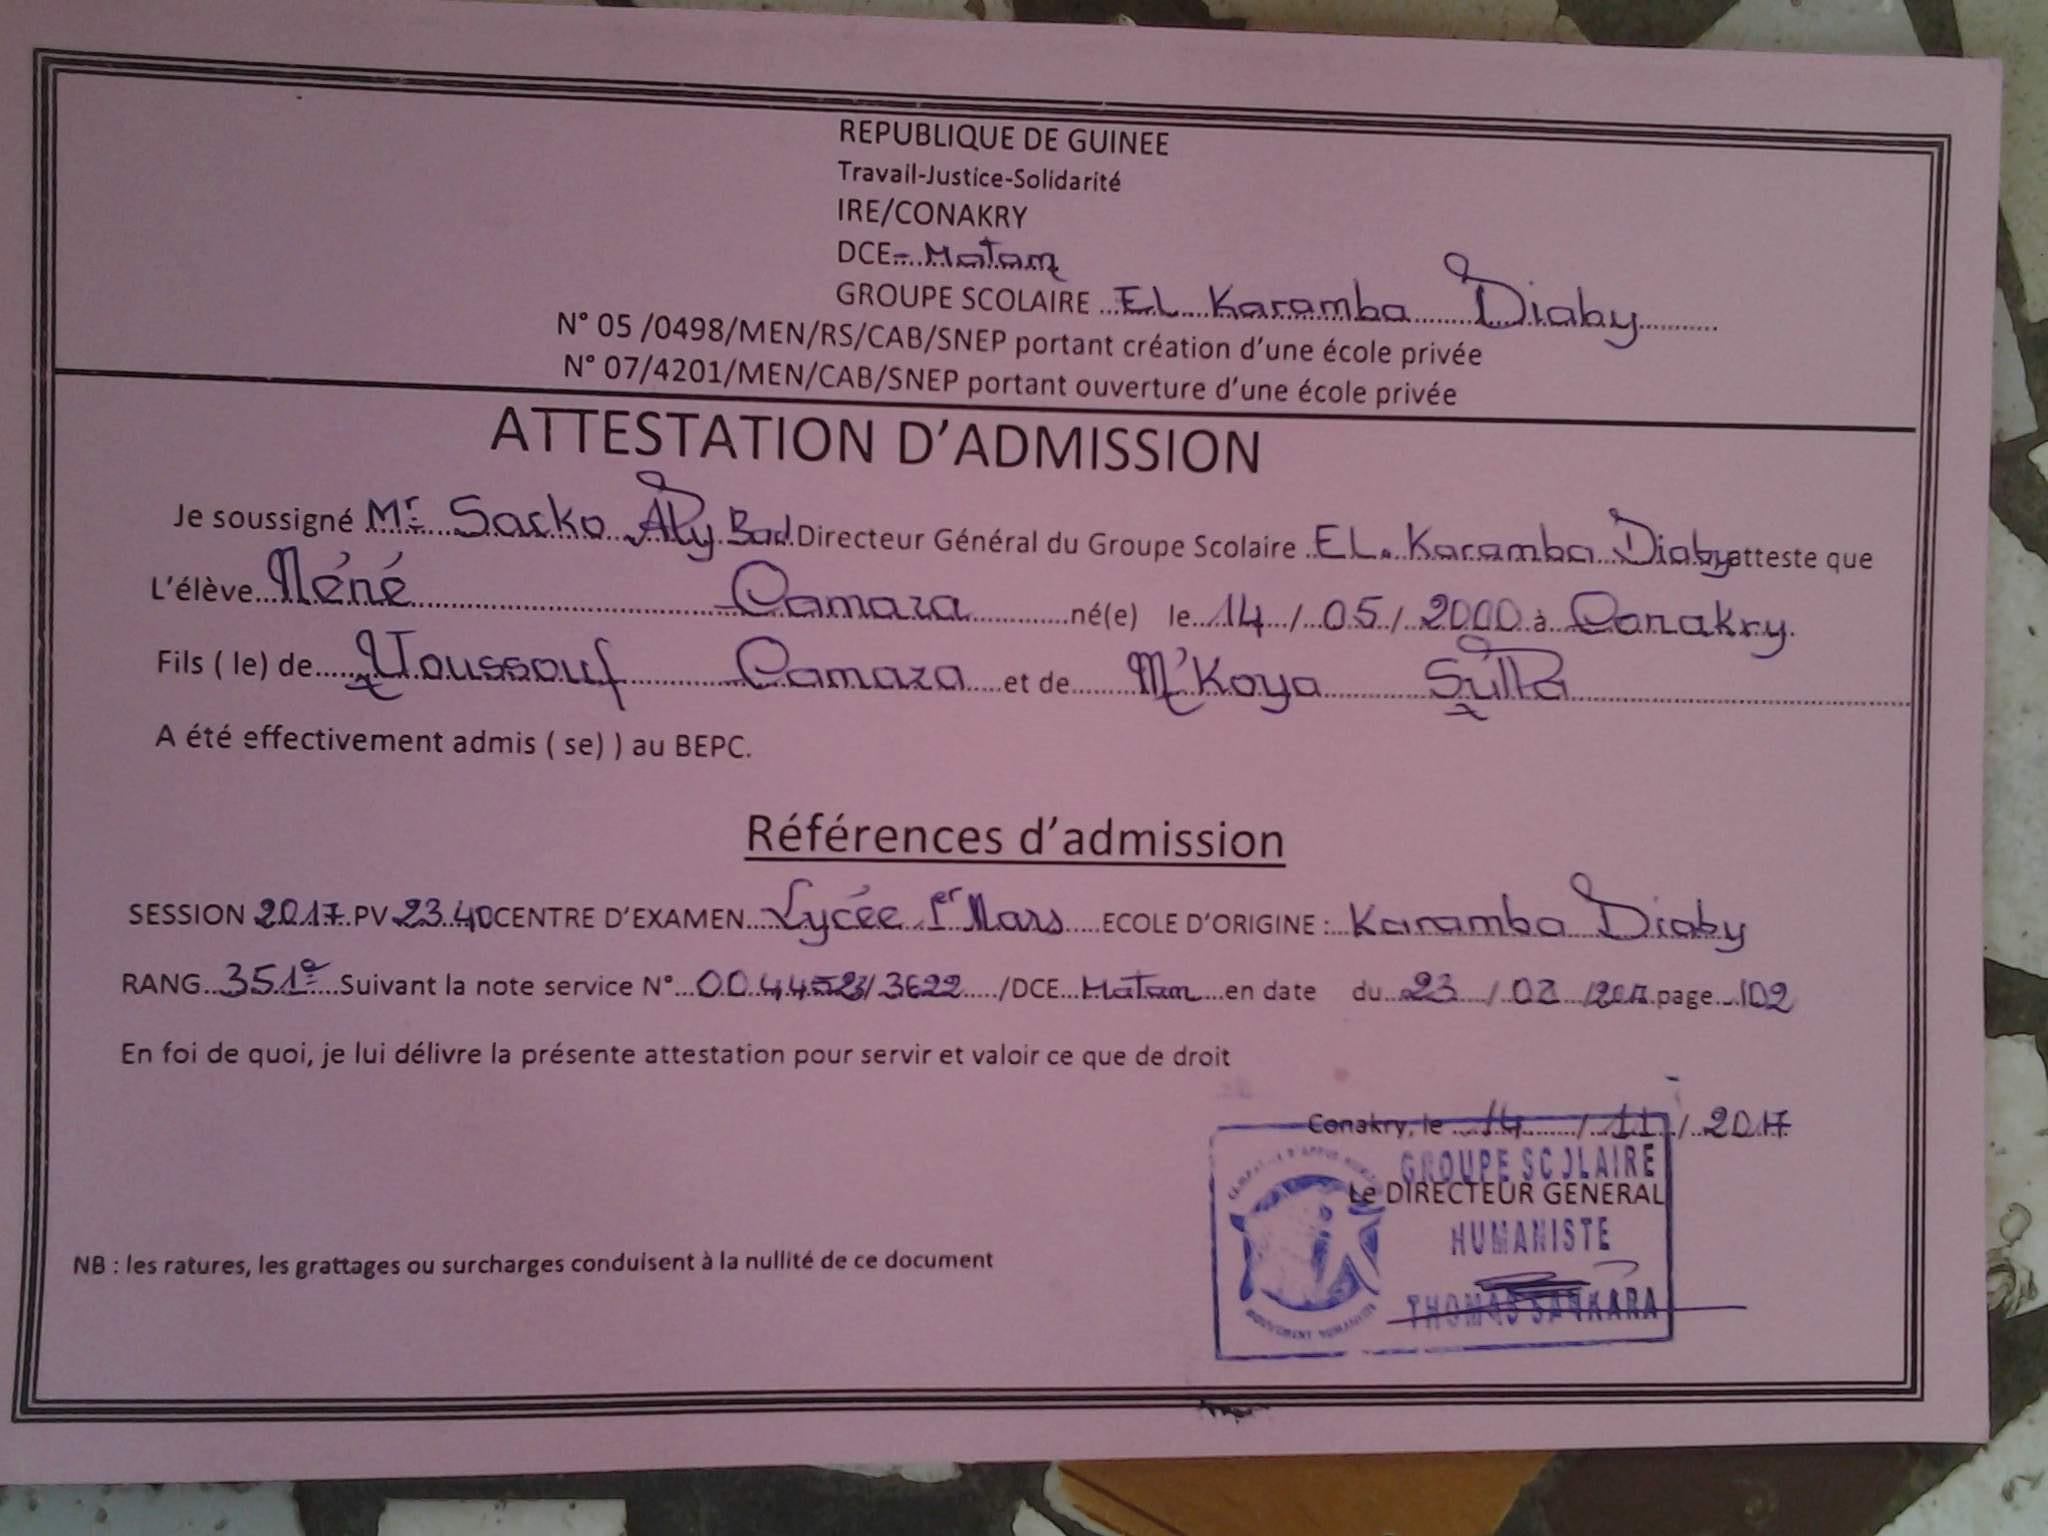 REPUBLIQUE DE GUINEE
Travail-Justice-Solidarité
IRE/CONAKRY
DCE-..Matam
GROUPE SCOLAIRE ..EL Karamba Diaby
N° 05 /0498/MEN/RS/CAB/SNEP portant création d'une école privée
N° 07/4201/MEN/CAB/SNEP portant ouverture d'une école privée
ATTESTATION D'ADMISSION
Je soussigné Mr Sacko Aly Bad Directeur Général du Groupe Scolaire EL Karamba Diaby atteste que
L'élève Néné Camara né(e) le 14 / 05 / 2000 à Conakry
Fils ( le) de Youssouf Camara et de M'Koya Sylla
A été effectivement admis ( se) ) au BEPC.
Références d'admission
SESSION 2017 PV 2340 CENTRE D'EXAMEN Lycée 1er Mars ECOLE D'ORIGINE : Karamba Diaby
RANG 351e Suivant la note service N° /3622 /DCE Matam en date du 23 / /2017 page 102
En foi de quoi, je lui délivre la présente attestation pour servir et valoir ce que de droit
Conakry, le 14 / 11 / 2017
GROUPE SCOLAIRE
Le DIRECTEUR GENERAL
HUMANISTE
THOMAS SANKARA
MOUVEMENT HUMANISTE
NB : les ratures, les grattages ou surcharges conduisent à la nullité de ce document